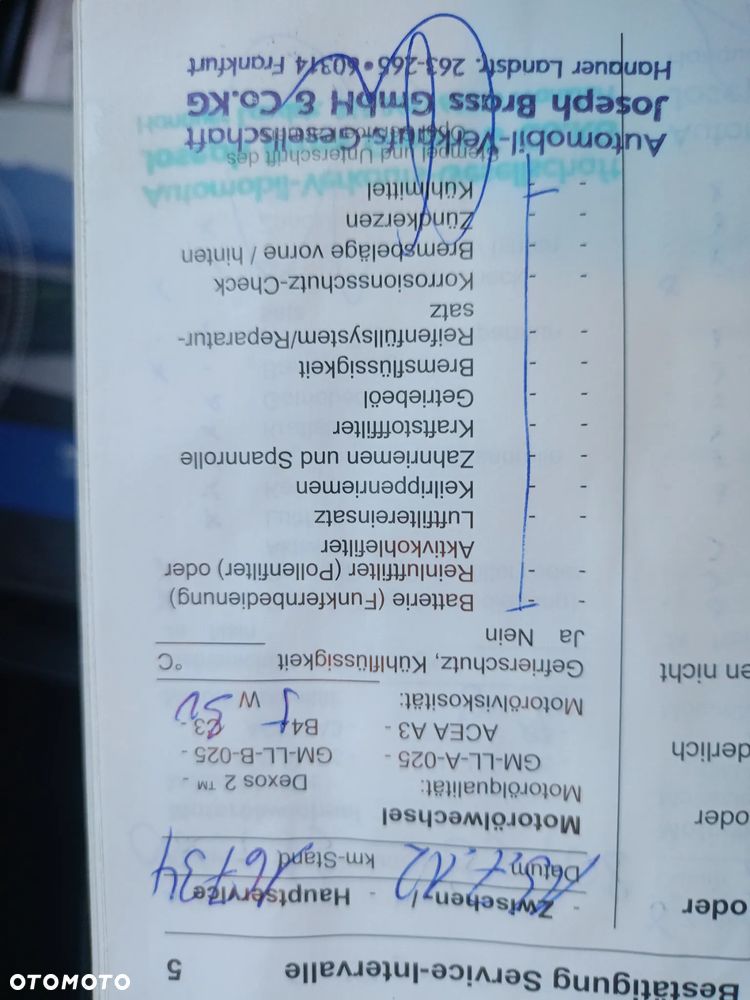 Bestätigung Service-Intervalle 5
oder
- Zwischen- / - Hauptservice
Datum 13.7.12 km-Stand 16734
oder
Motorölwechsel
Motorölqualität: Dexos 2 ™ -
derlich
GM-LL-A-025 - GM-LL-B-025 -
ACEA A3 - B4 - C3 -
Motorölviskosität: 5 W 30
en nicht
Gefrierschutz, Kühlflüssigkeit °C
Ja Nein
- - Batterie (Funkfernbedienung)
- - Reinluftfilter (Pollenfilter) oder
Aktivkohlefilter
- - Luftfiltereinsatz
- - Keilrippenriemen
- - Zahnriemen und Spannrolle
- - Kraftstofffilter
- - Getriebeöl
- - Bremsflüssigkeit
- - Reifenfüllsystem/Reparatur-
satz
- - Korrosionsschutz-Check
- - Bremsbeläge vorne / hinten
- - Zündkerzen
- - Kühlmittel
Stempel und Unterschrift des
Automobil-Verkaufs-Gesellschaft
Joseph Brass GmbH & Co.KG
Hanauer Landstr. 263-265 • 60314 Frankfurt
OTOMOTO